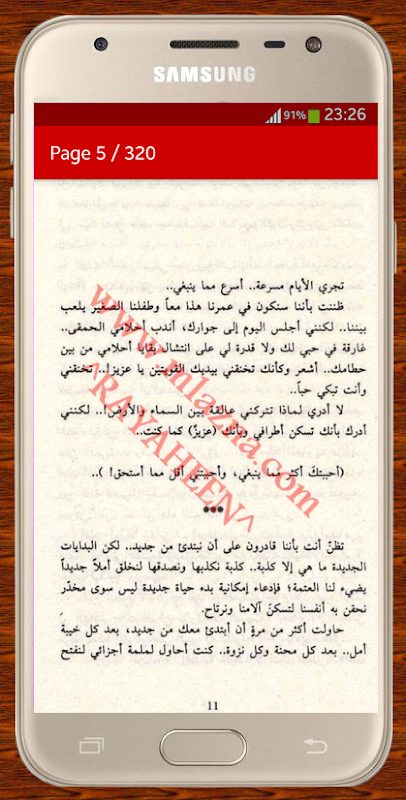 SAMSUNG
91% 23:26
Page 5 / 320
تجري الأيام مسرعة.. أسرع مما ينبغي..
ظننت بأننا سنكون في عمرنا هذا معاً وطفلنا الصغير يلعب
بيننا.. لكنني أجلس اليوم إلى جوارك، أندب أحلامي الحمقى..
غارقة في حبي لك ولا قدرة لي على انتشال بقايا أحلامي من بين
حطامك.. أشعر وكأنك تخنقني بيديك القويتين يا عزيز!.. تخنقني
وأنت تبكي حباً..
لا أدري لماذا تتركني عالقة بين السماء والأرض!.. لكنني
أدرك بأنك تسكن أطرافي وبأنك (عزيزٌ) كما كنت..
(أحببتكَ أكثر مما ينبغي، وأحببتني أقل مما أستحق! )..
***
تظنّ أنت بأننا قادرون على أن نبتدئ من جديد.. لكن البدايات
الجديدة ما هي إلا كذبة.. كذبة نكذبها ونصدقها لنخلق أملاً جديداً
يضيء لنا العتمة؛ فإدعاء إمكانية بدء حياة جديدة ليس سوى مخدّر
نحقن به أنفسنا لتسكنّ آلامنا ونرتاح.
حاولت أكثر من مرةٍ أن أبتدئ معك من جديد، بعد كل خيبة
أمل.. بعد كل محنة وكل نزوة.. كنت أحاول لملمة أجزائي لنفتح
11
www.mlazna.com
^RAYAHEEN^